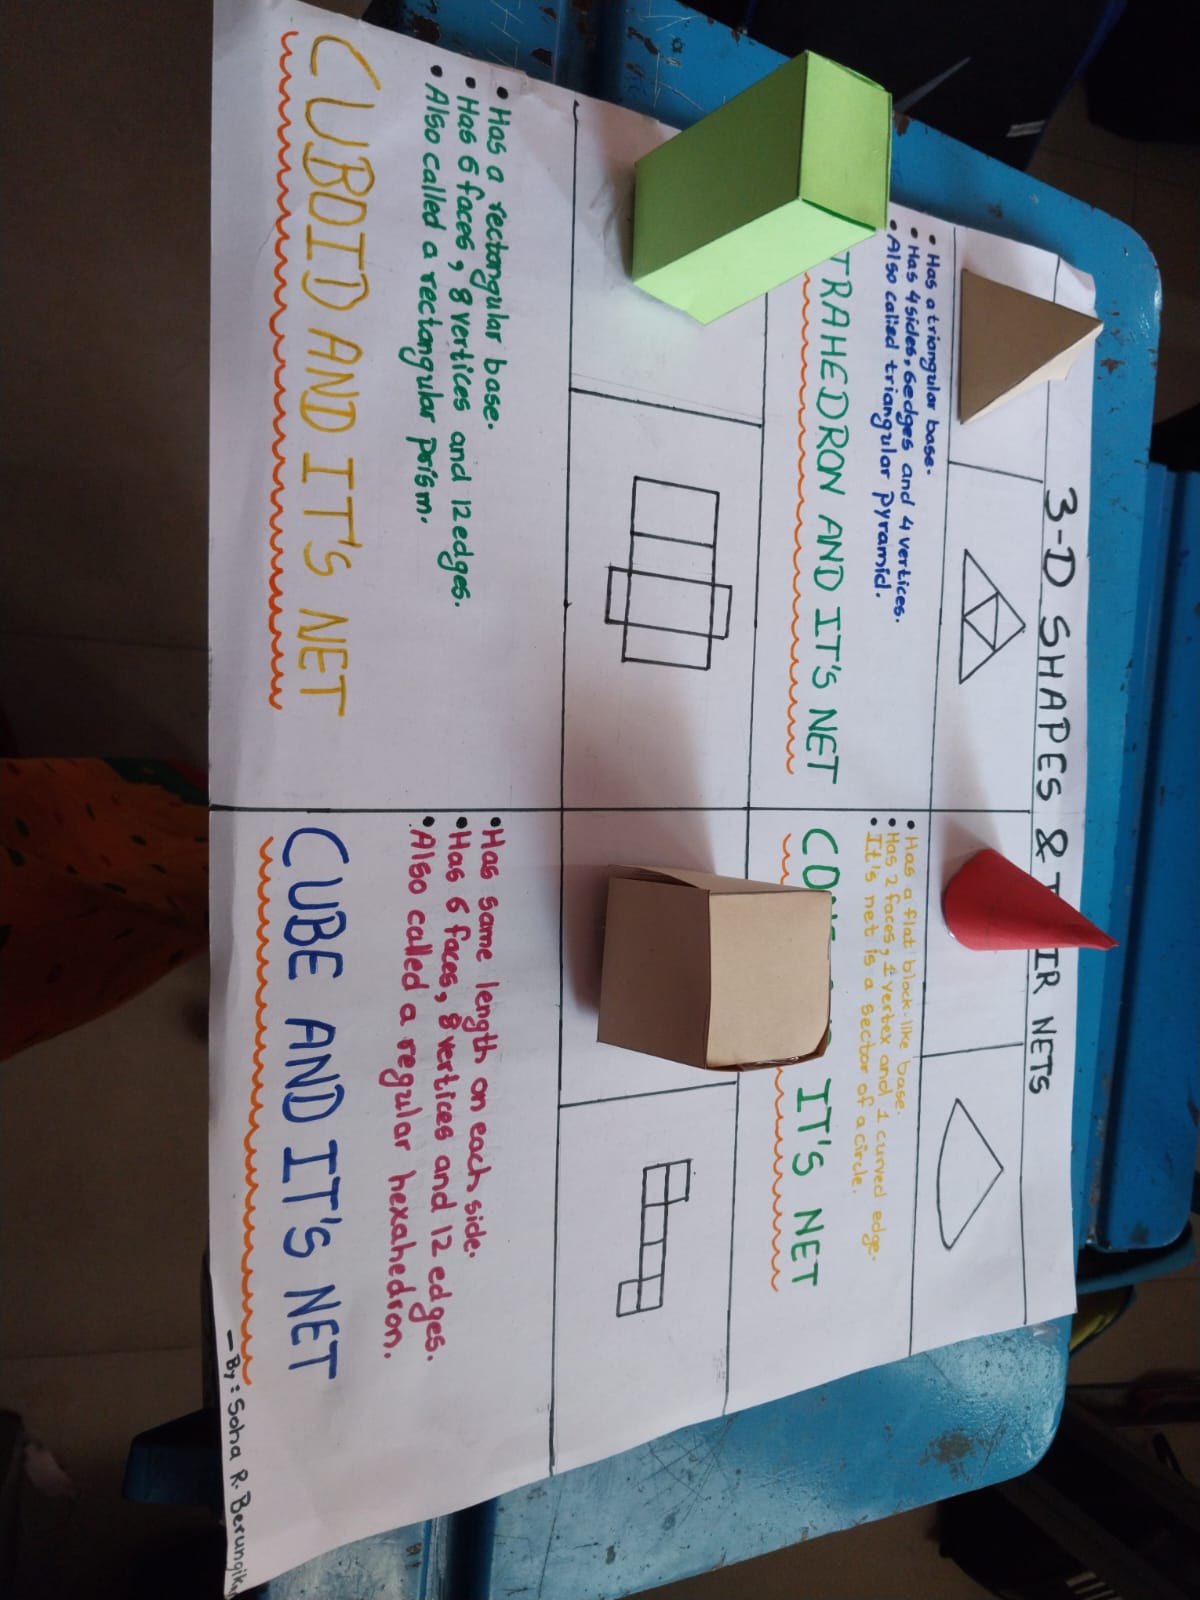 3-D SHAPES & IR NETS
• Has a triangular base.
• Has 4 sides, 6 edges and 4 vertices.
• Also called triangular pyramid.
TRAHEDRON AND IT'S NET
• Has a flat block-like base.
• Has 2 faces, 1 vertex and 1 curved edge.
• It's net is a sector of a circle.
IT'S NET
• Has a rectangular base.
• Has 6 faces, 8 vertices and 12 edges.
• Also called a rectangular prism.
CUBOID AND IT'S NET
• Has same length on each side.
• Has 6 faces, 8 vertices and 12 edges.
• Also called a regular hexahedron.
CUBE AND IT'S NET
– By: Soha R.